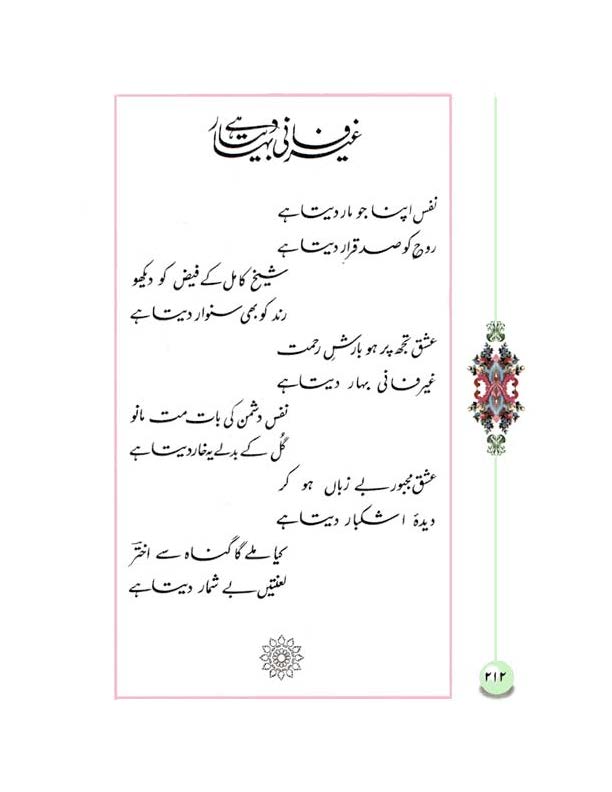 غیر فانی بہار دیتا ہے
نفس اپنا جو مار دیتا ہے
روح کو صد قرار دیتا ہے
شیخ کامل کے فیض کو دیکھو
رند کو بھی سنوار دیتا ہے
عشق تجھ پر ہو بارشِ رحمت
غیر فانی بہار دیتا ہے
نفس دشمن کی بات مت مانو
گُل کے بدلے یہ خار دیتا ہے
عشق مجبور بے زباں ہو کر
دیدۂ اشکبار دیتا ہے
کیا ملے گا گناہ سے اخترؔ
لعنتیں بے شمار دیتا ہے
۲۱۲